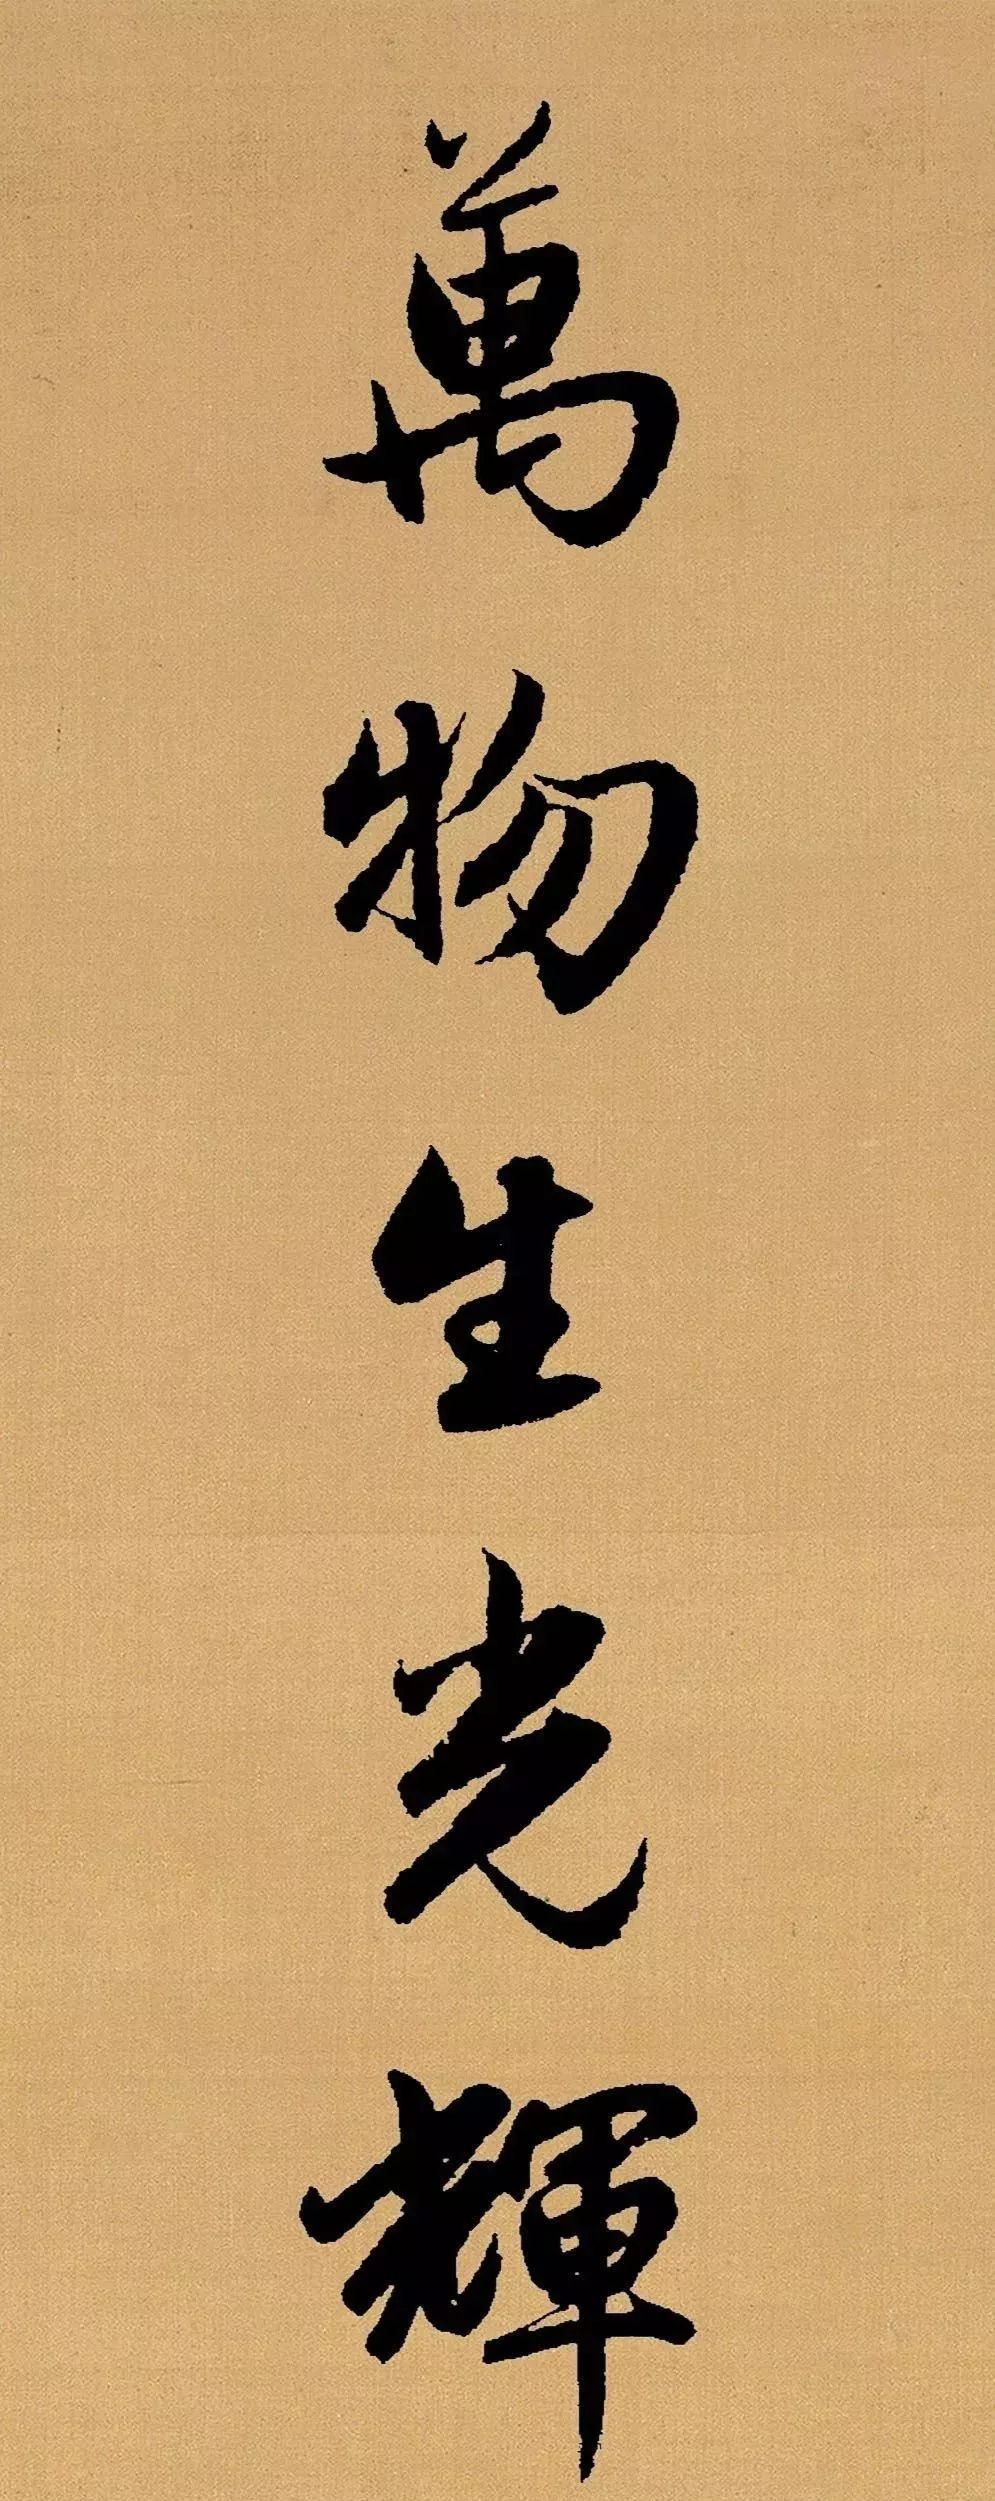 萬物生光輝